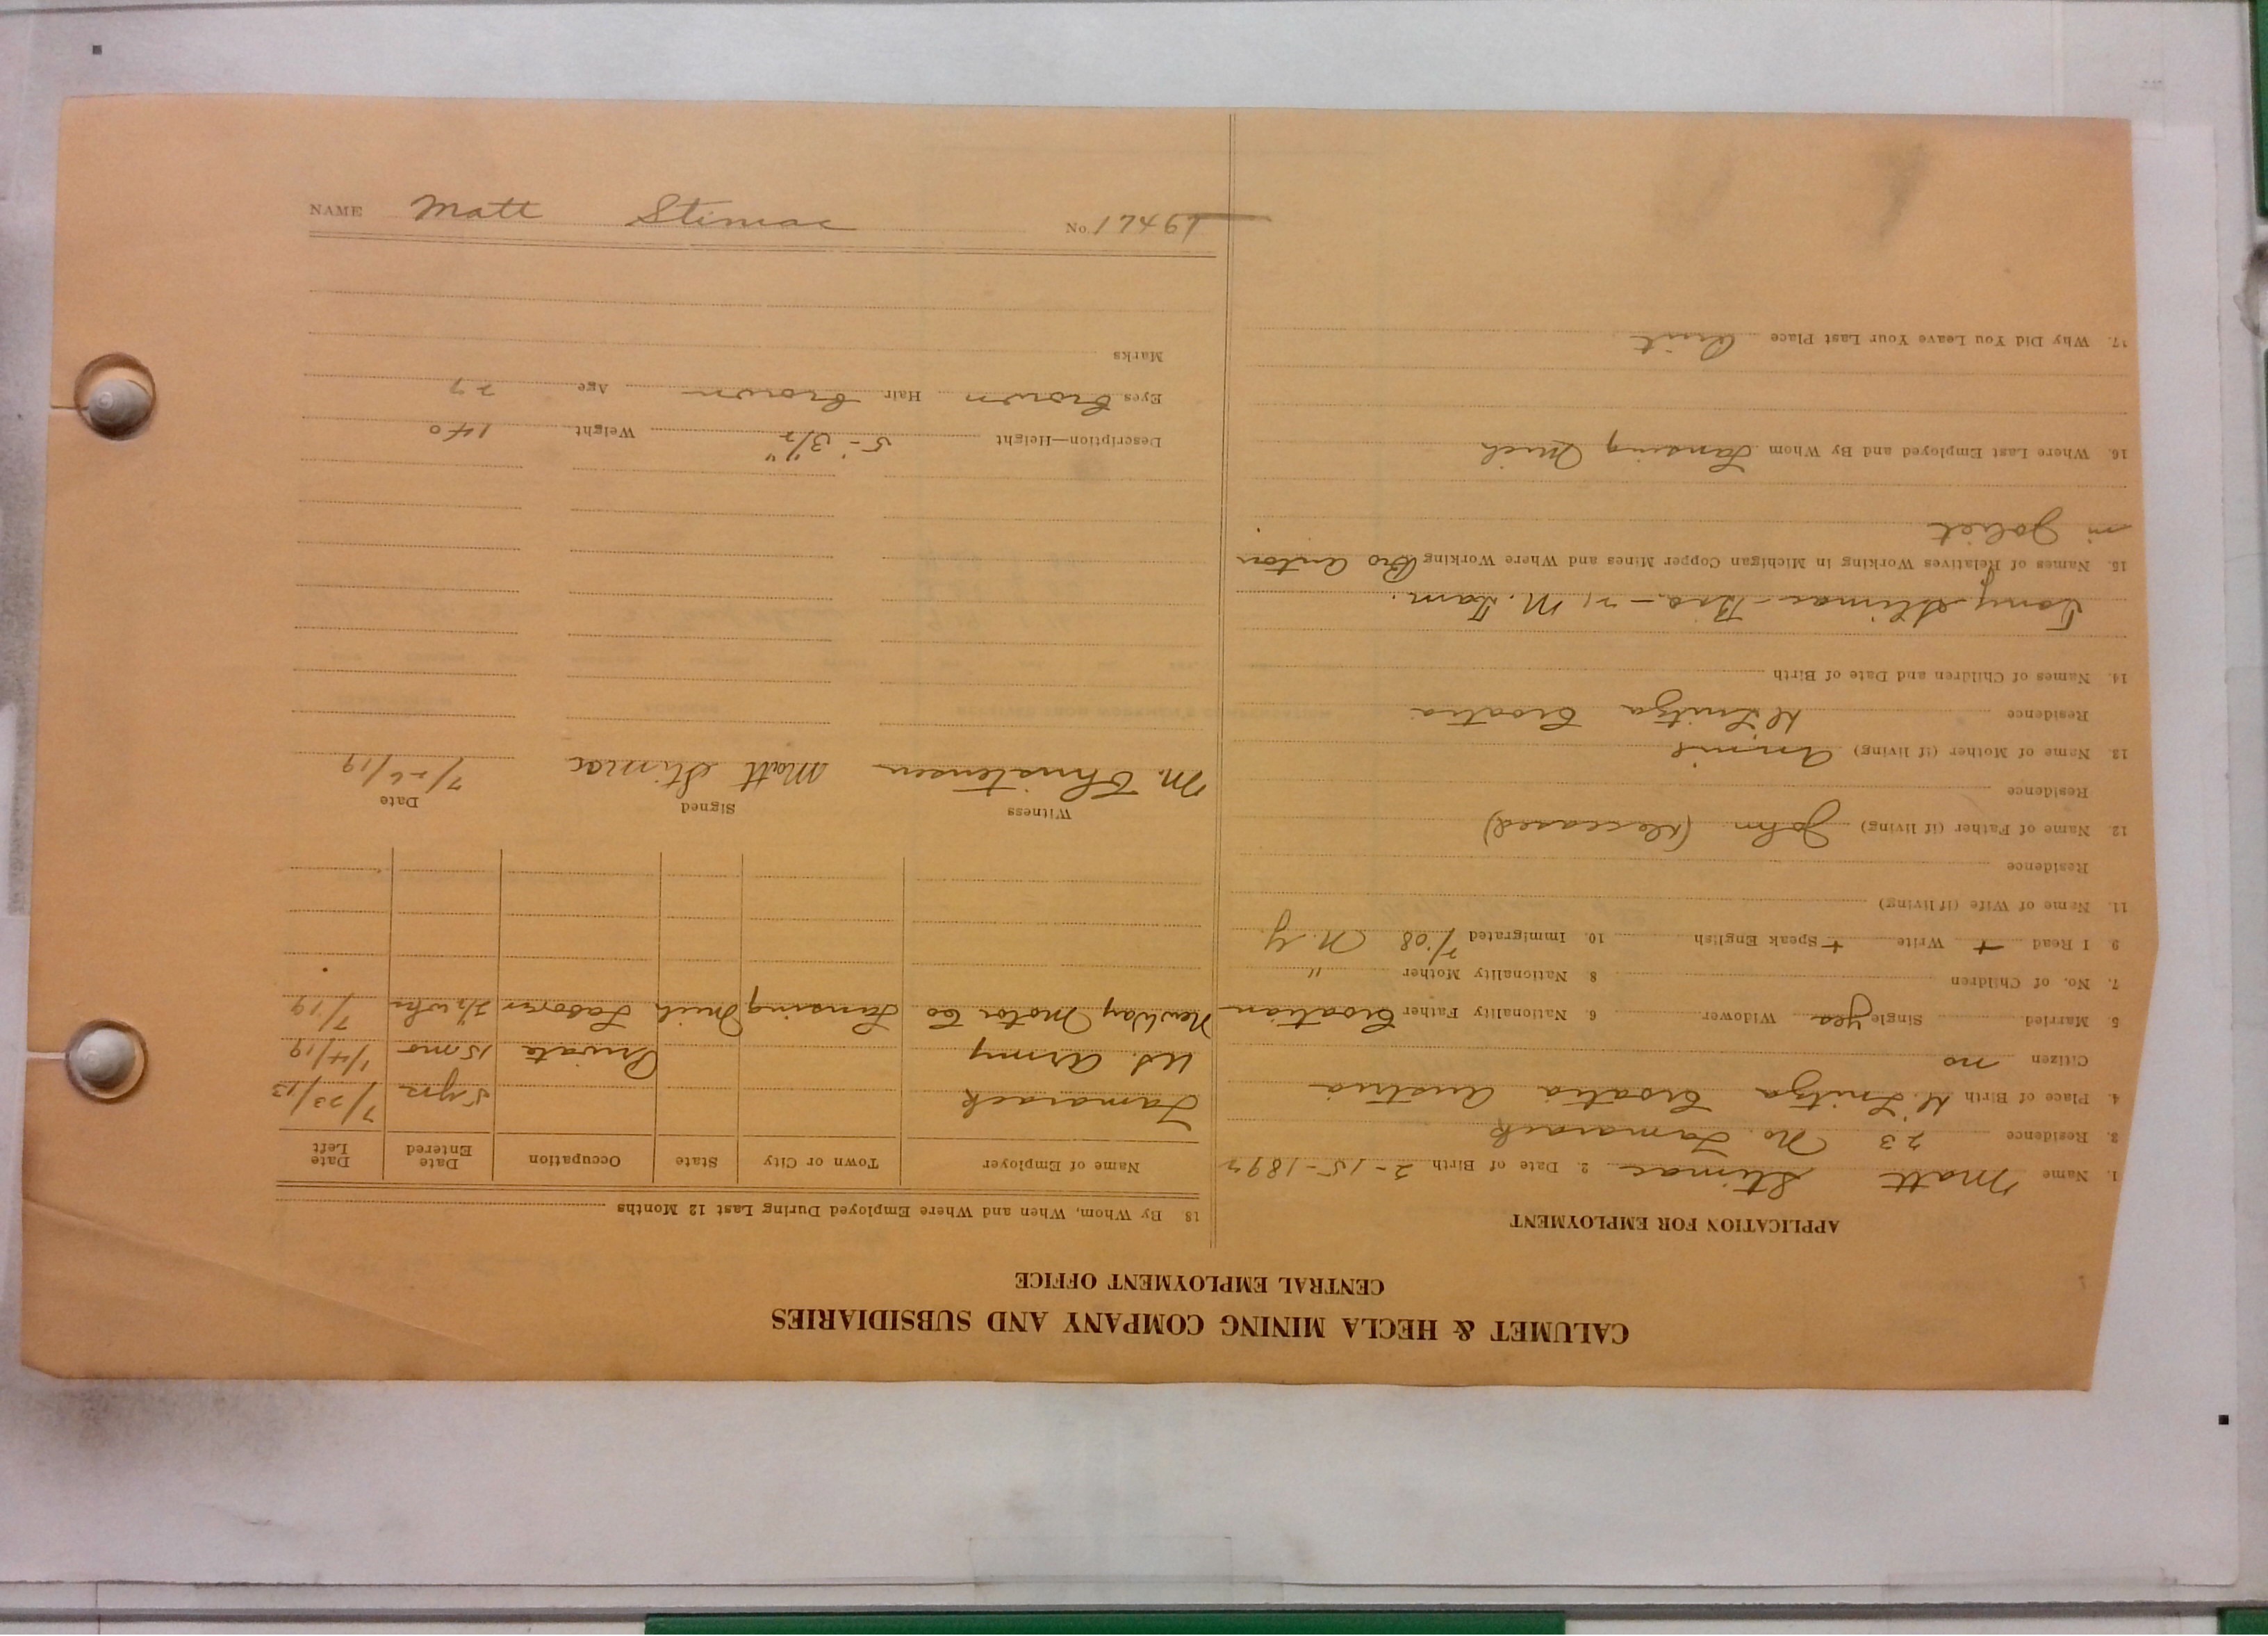 CALUMET & HECLA MINING COMPANY AND SUBSIDIARIES
CENTRAL EMPLOYMENT OFFICE
APPLICATION FOR EMPLOYMENT
1. Name Matt Stimac 2. Date of Birth 2-15-1892
3. Residence 23 No. Tamarack
4. Place of Birth Croatia Austria
Citizen no
5. Married Single yes Widower 6. Nationality Father Croatian
7. No. of Children 8 Nationality Mother "
9 I Read + Write + Speak English 10. Immigrated 7/08 N.Y
11. Name of Wife (if living)
Residence
12. Name of Father (if living) John (deceased)
Residence
13. Name of Mother (if living) Annie
Residence Croatia
14. Names of Children and Date of Birth
Tony Stimac - Bro. - 21 M. Tam.
15. Names of Relatives Working in Michigan Copper Mines and Where Working Bro Anton
in Joliet
16. Where Last Employed and By Whom Lansing Mich
17. Why Did You Leave Your Last Place Quit
18 By Whom, When and Where Employed During Last 12 Months
Name of Employer Town or City State Occupation Date Entered Date Left
Tamarack 5 yrs 7/23/13
U.S. Army Private 15 mo 1/4/19
New Way Motor Co Lansing Mich Laborer 2 1/2 wks 7/19
Witness Signed Date
M. Christensen Matt Stimac 7/26/19
Description—Height 5'-3 1/2" Weight 140
Eyes Brown Hair Brown Age 27
Marks
NAME Matt Stimac No. 17461